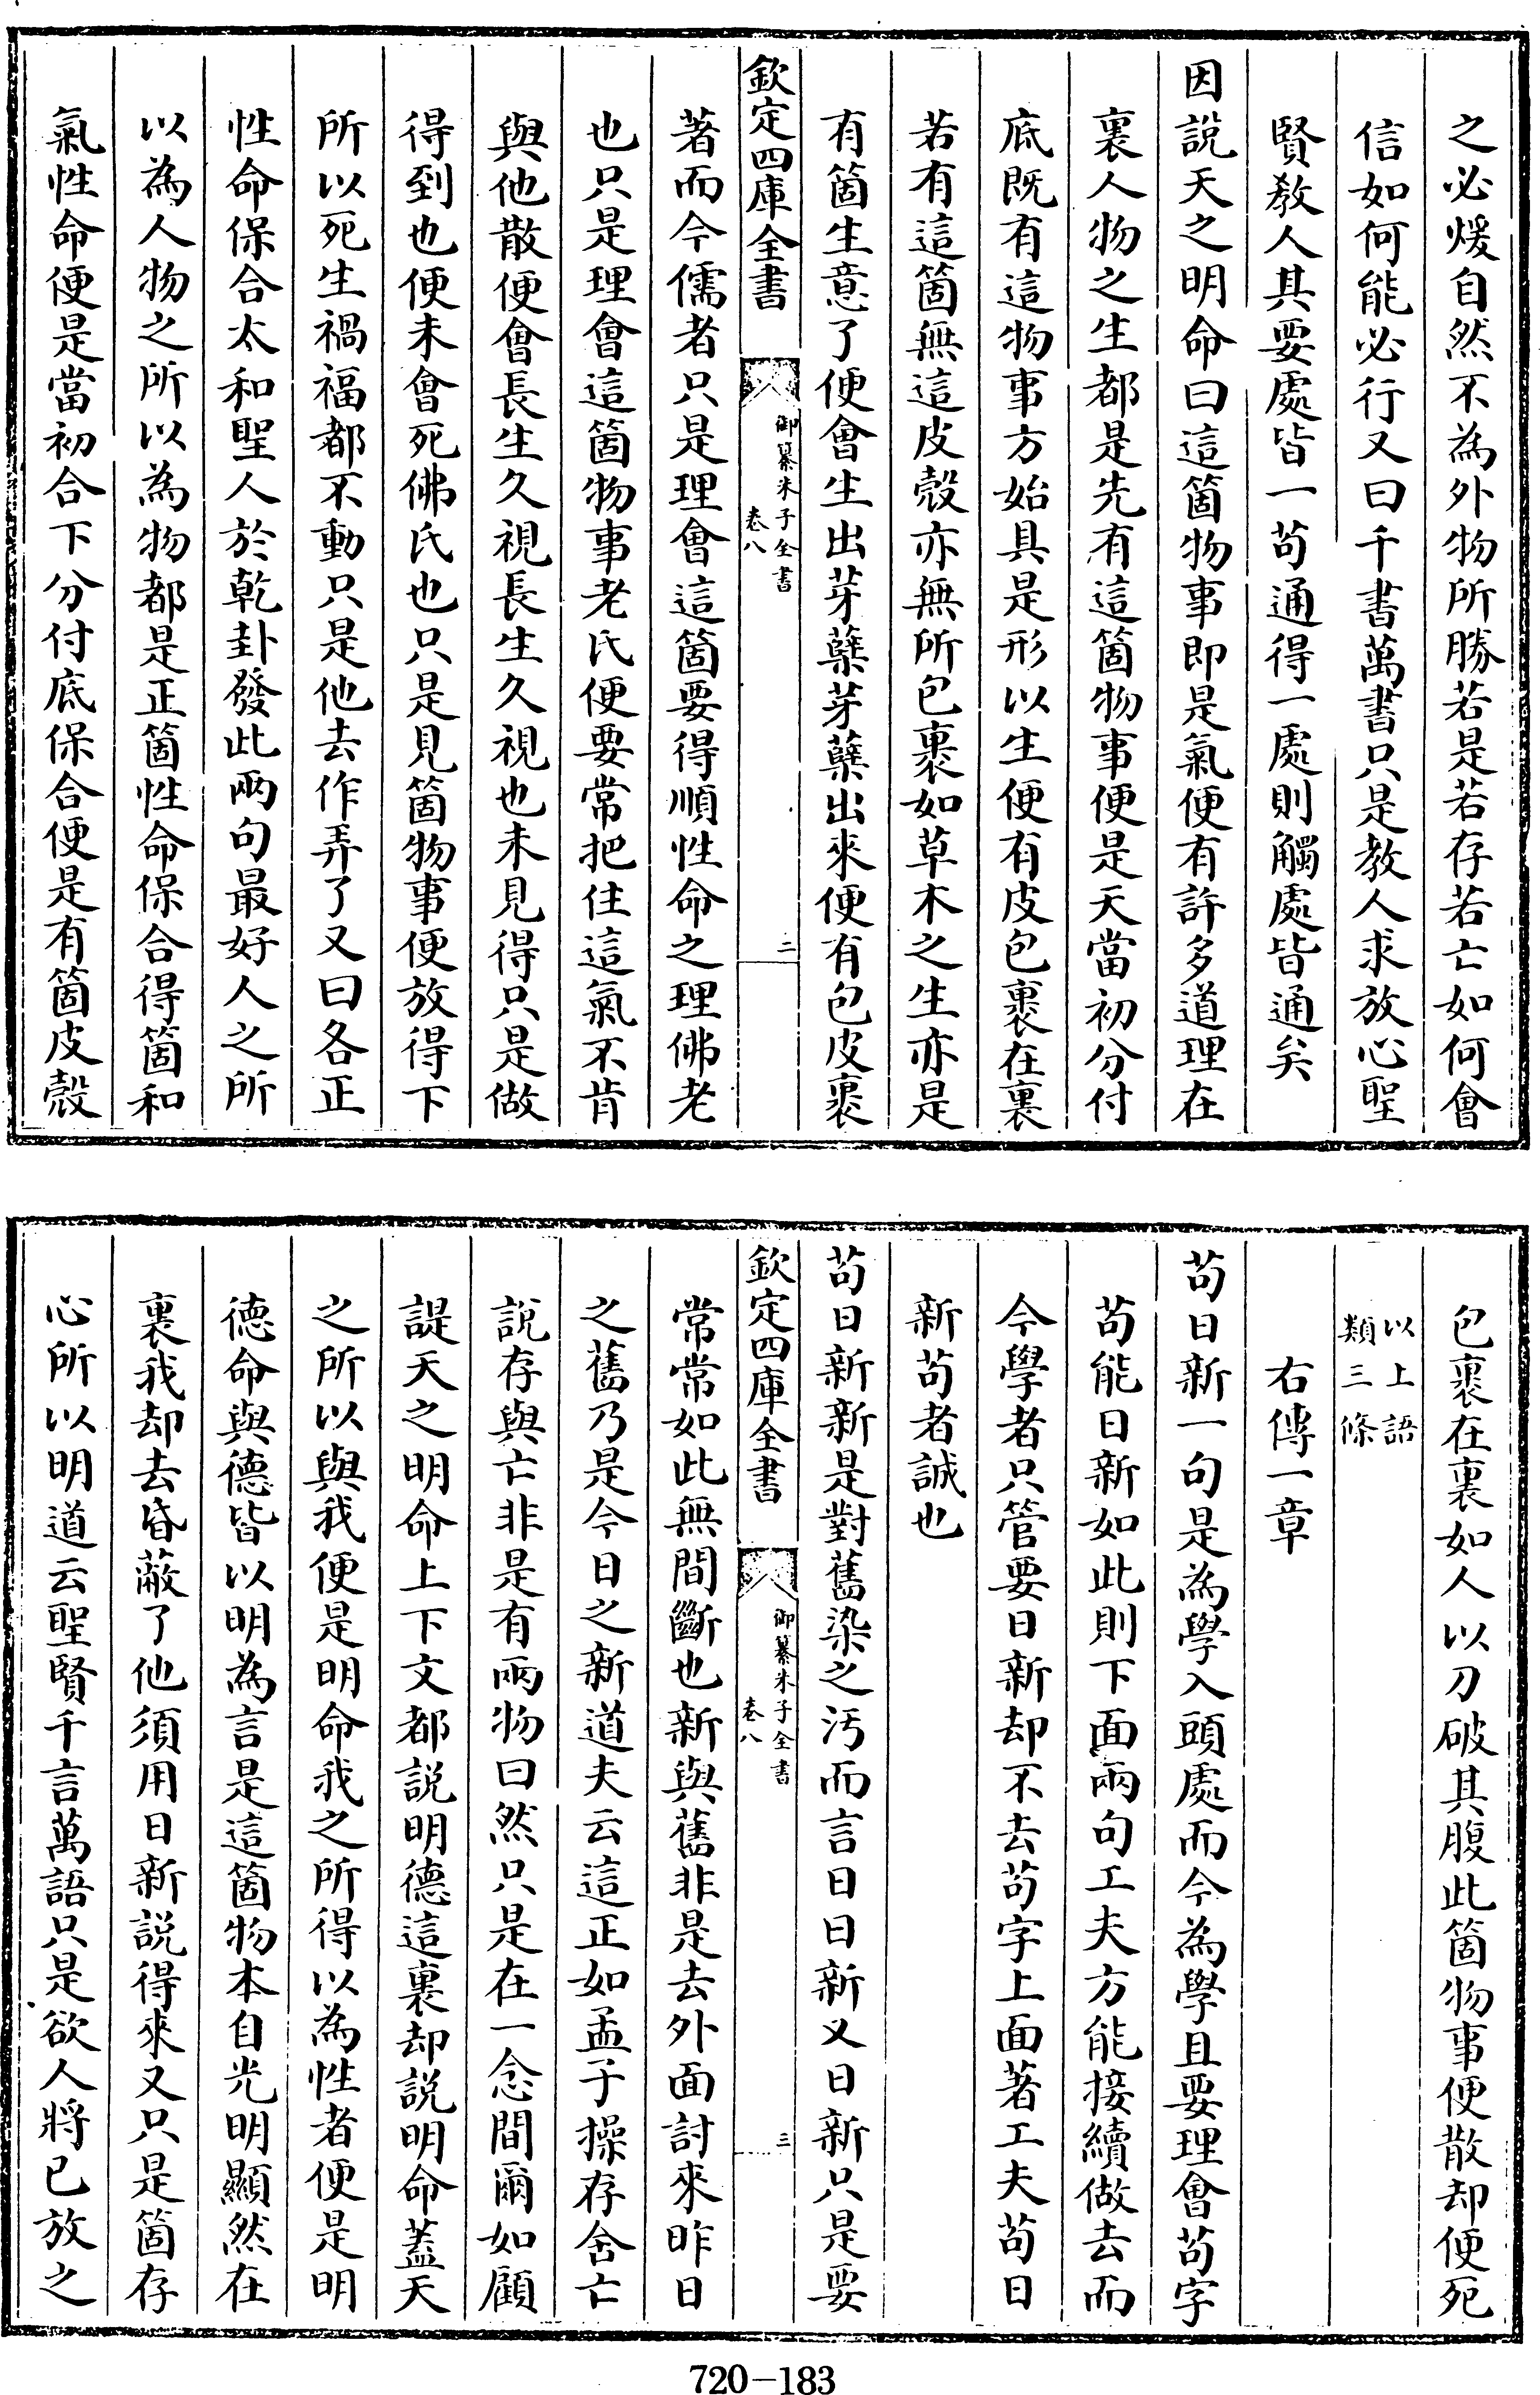 之必煖自然不為外物所勝若是若存若亡如何會
信如何能必行又曰千書萬書只是教人求放心聖
賢教人其要處皆一苟通得一處則觸處皆通矣
因說天之明命曰這箇物事即是氣便有許多道理在
裏人物之生都是先有這箇物事便是天當初分付
底既有這物事方始具是形以生便有皮包裹在裏
若有這箇無這皮殼亦無所包裹如草木之生亦是
有箇生意了便會生出芽蘖芽蘖出來便有包皮裹
欽定四庫全書
御纂朱子全書
卷八
二
著而今儒者只是理會這箇要得順性命之理佛老
也只是理會這箇物事老氏便要常把住這氣不肯
與他散便會長生久視長生久視也未見得只是做
得到也便未會死佛氏也只是見箇物事便放得下
所以死生禍福都不動只是他去作弄了又曰各正
性命保合太和聖人於乾卦發此兩句最好人之所
以為人物之所以為物都是正箇性命保合得箇和
氣性命便是當初合下分付底保合便是有箇皮殼
包裹在裏如人以刀破其腹此箇物事便散却便死
以上語
類三條
右傳一章
苟日新一句是為學入頭處而今為學且要理會苟字
苟能日新如此則下面兩句工夫方能接續做去而
今學者只管要日新却不去苟字上面著工夫苟日
新苟者誠也
苟日新新是對舊染之汚而言日日新又日新只是要
欽定四庫全書
御纂朱子全書
卷八
三
常常如此無間斷也新與舊非是去外面討來昨日
之舊乃是今日之新道夫云這正如孟子操存舍亡
說存與亡非是有兩物曰然只是在一念間爾如顧
諟天之明命上下文都說明德這裏却說明命蓋天
之所以與我便是明命我之所得以為性者便是明
德命與德皆以明為言是這箇物本自光明顯然在
裏我却去昏蔽了他須用日新說得來又只是箇存
心所以明道云聖賢千言萬語只是欲人將已放之
720-183